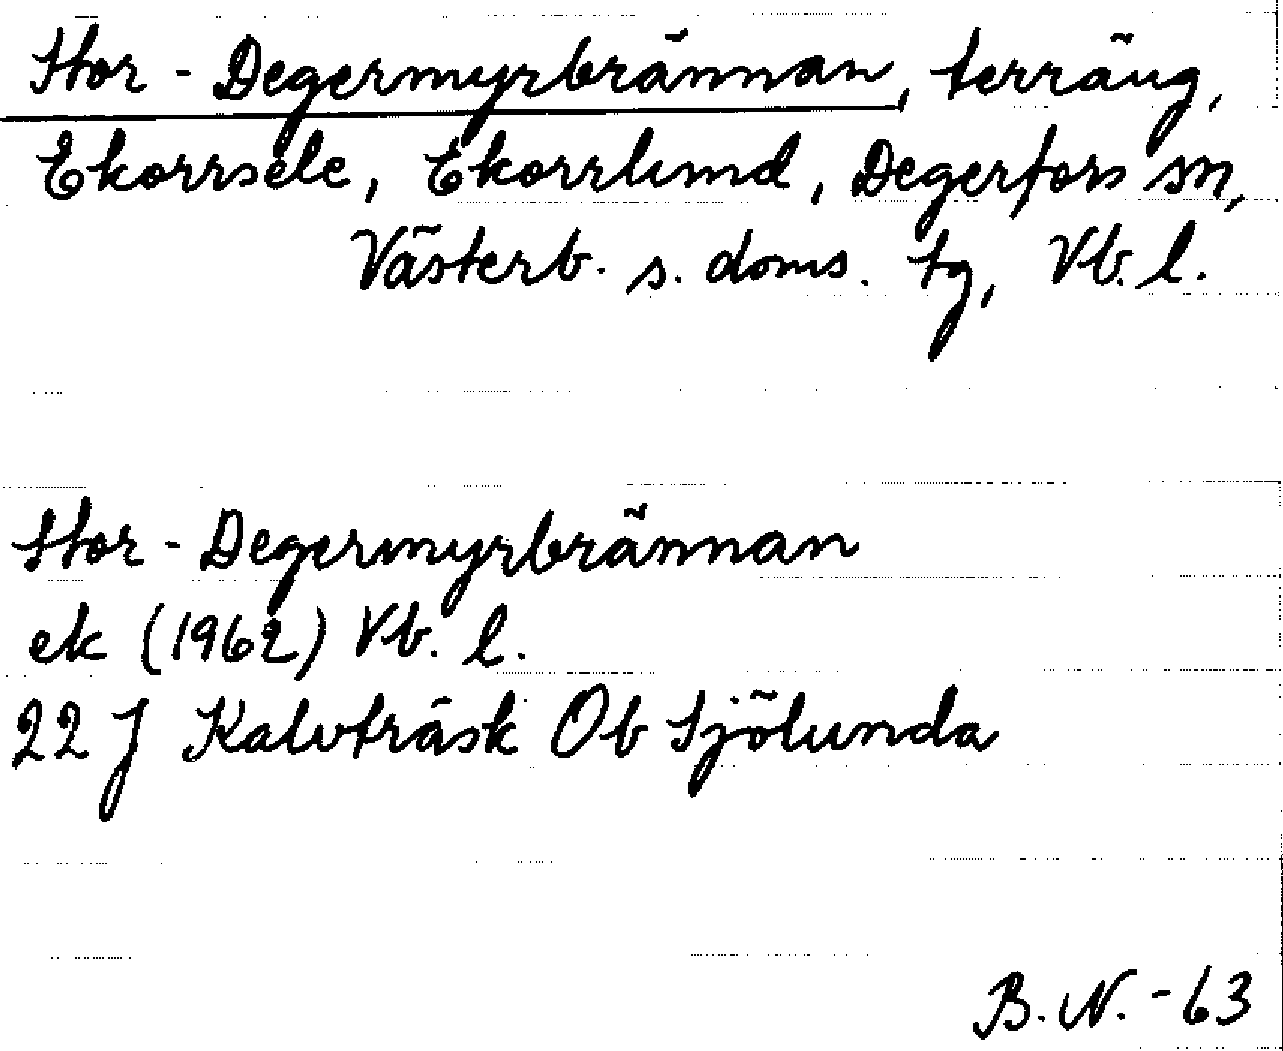 Stor-Degermyrbrännan, terräng,
Ekorrsele, Ekorrlund, Degerfors sn,
Västerb. s. doms. tg, Vb. l.
Stor-Degermyrbrännan
ek (1962) Vb. l.
22 J Kalvträsk Ob Sjölunda
B. N. -63